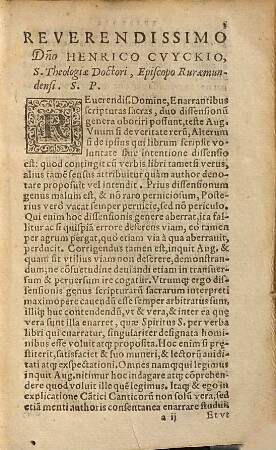 REVERENDISSIMO
Dño HENRICO CVYCKIO,
S. Theologiæ Doctori, Episcopo Ruræmun-
densi. S. P.
REuerendiss. Domine, Enarrantibus
scripturas sacras, duo dissensionũ
genera oboriri possunt, teste Aug.
Vnum si de veritate rerũ, Alterum
si de ipsius qui librum scripsit vo-
luntate siue intentione dissensio
est: quod contingit cũ verbis libri tametsi verus,
alius tamẽ sensus attribuitur quàm author deno-
tare proposuit vel intendit. Prius dissensionum
genus malum est, & nõ raro perniciosum, Poste-
rius verò vacat semper pernicie, sed nõ periculo.
Qui enim hoc dissensionis genere aberrat, ita fal-
litur ac si quispiã errore deserens viam, eò tamen
per agrum pergat, quò etiam via à qua aberrauit,
perducit. Corrigendus tamen est, inquit Aug. &
quam sit vtilius viam non deserere, demonstran-
dum; ne cõsuetudine deuiandi etiam in transuer-
sum & peruersum ire cogatur. Vtrumq; ergo dis-
sensionis genus scripturarũ sacrarum interpreti
maximopere cauendũ esse semper arbitratus sum,
illudque huic contendendũ, vt & vera, & inter ea quę
vera sunt illa enarret, quæ Spiritus S. per verba
libri quẽ enarratur, singulariter designata homi-
nibus esse voluit atq; proposita. Hoc enim si præ-
stiterit, satisfaciet & suo muneri, & lectorũ auidi-
tati atq; exspectationi. Omnes namq; qui legimus
inquit Aug. nitimur hoc indagare atq; cõprehen-
dere quod voluit ille quẽ legimus. Itaq; & ego in
explicatione Cãtici Canticorũ non solũ vera, sed
et iã menti authoris consentanea enarrare studui.
a ij Et vt